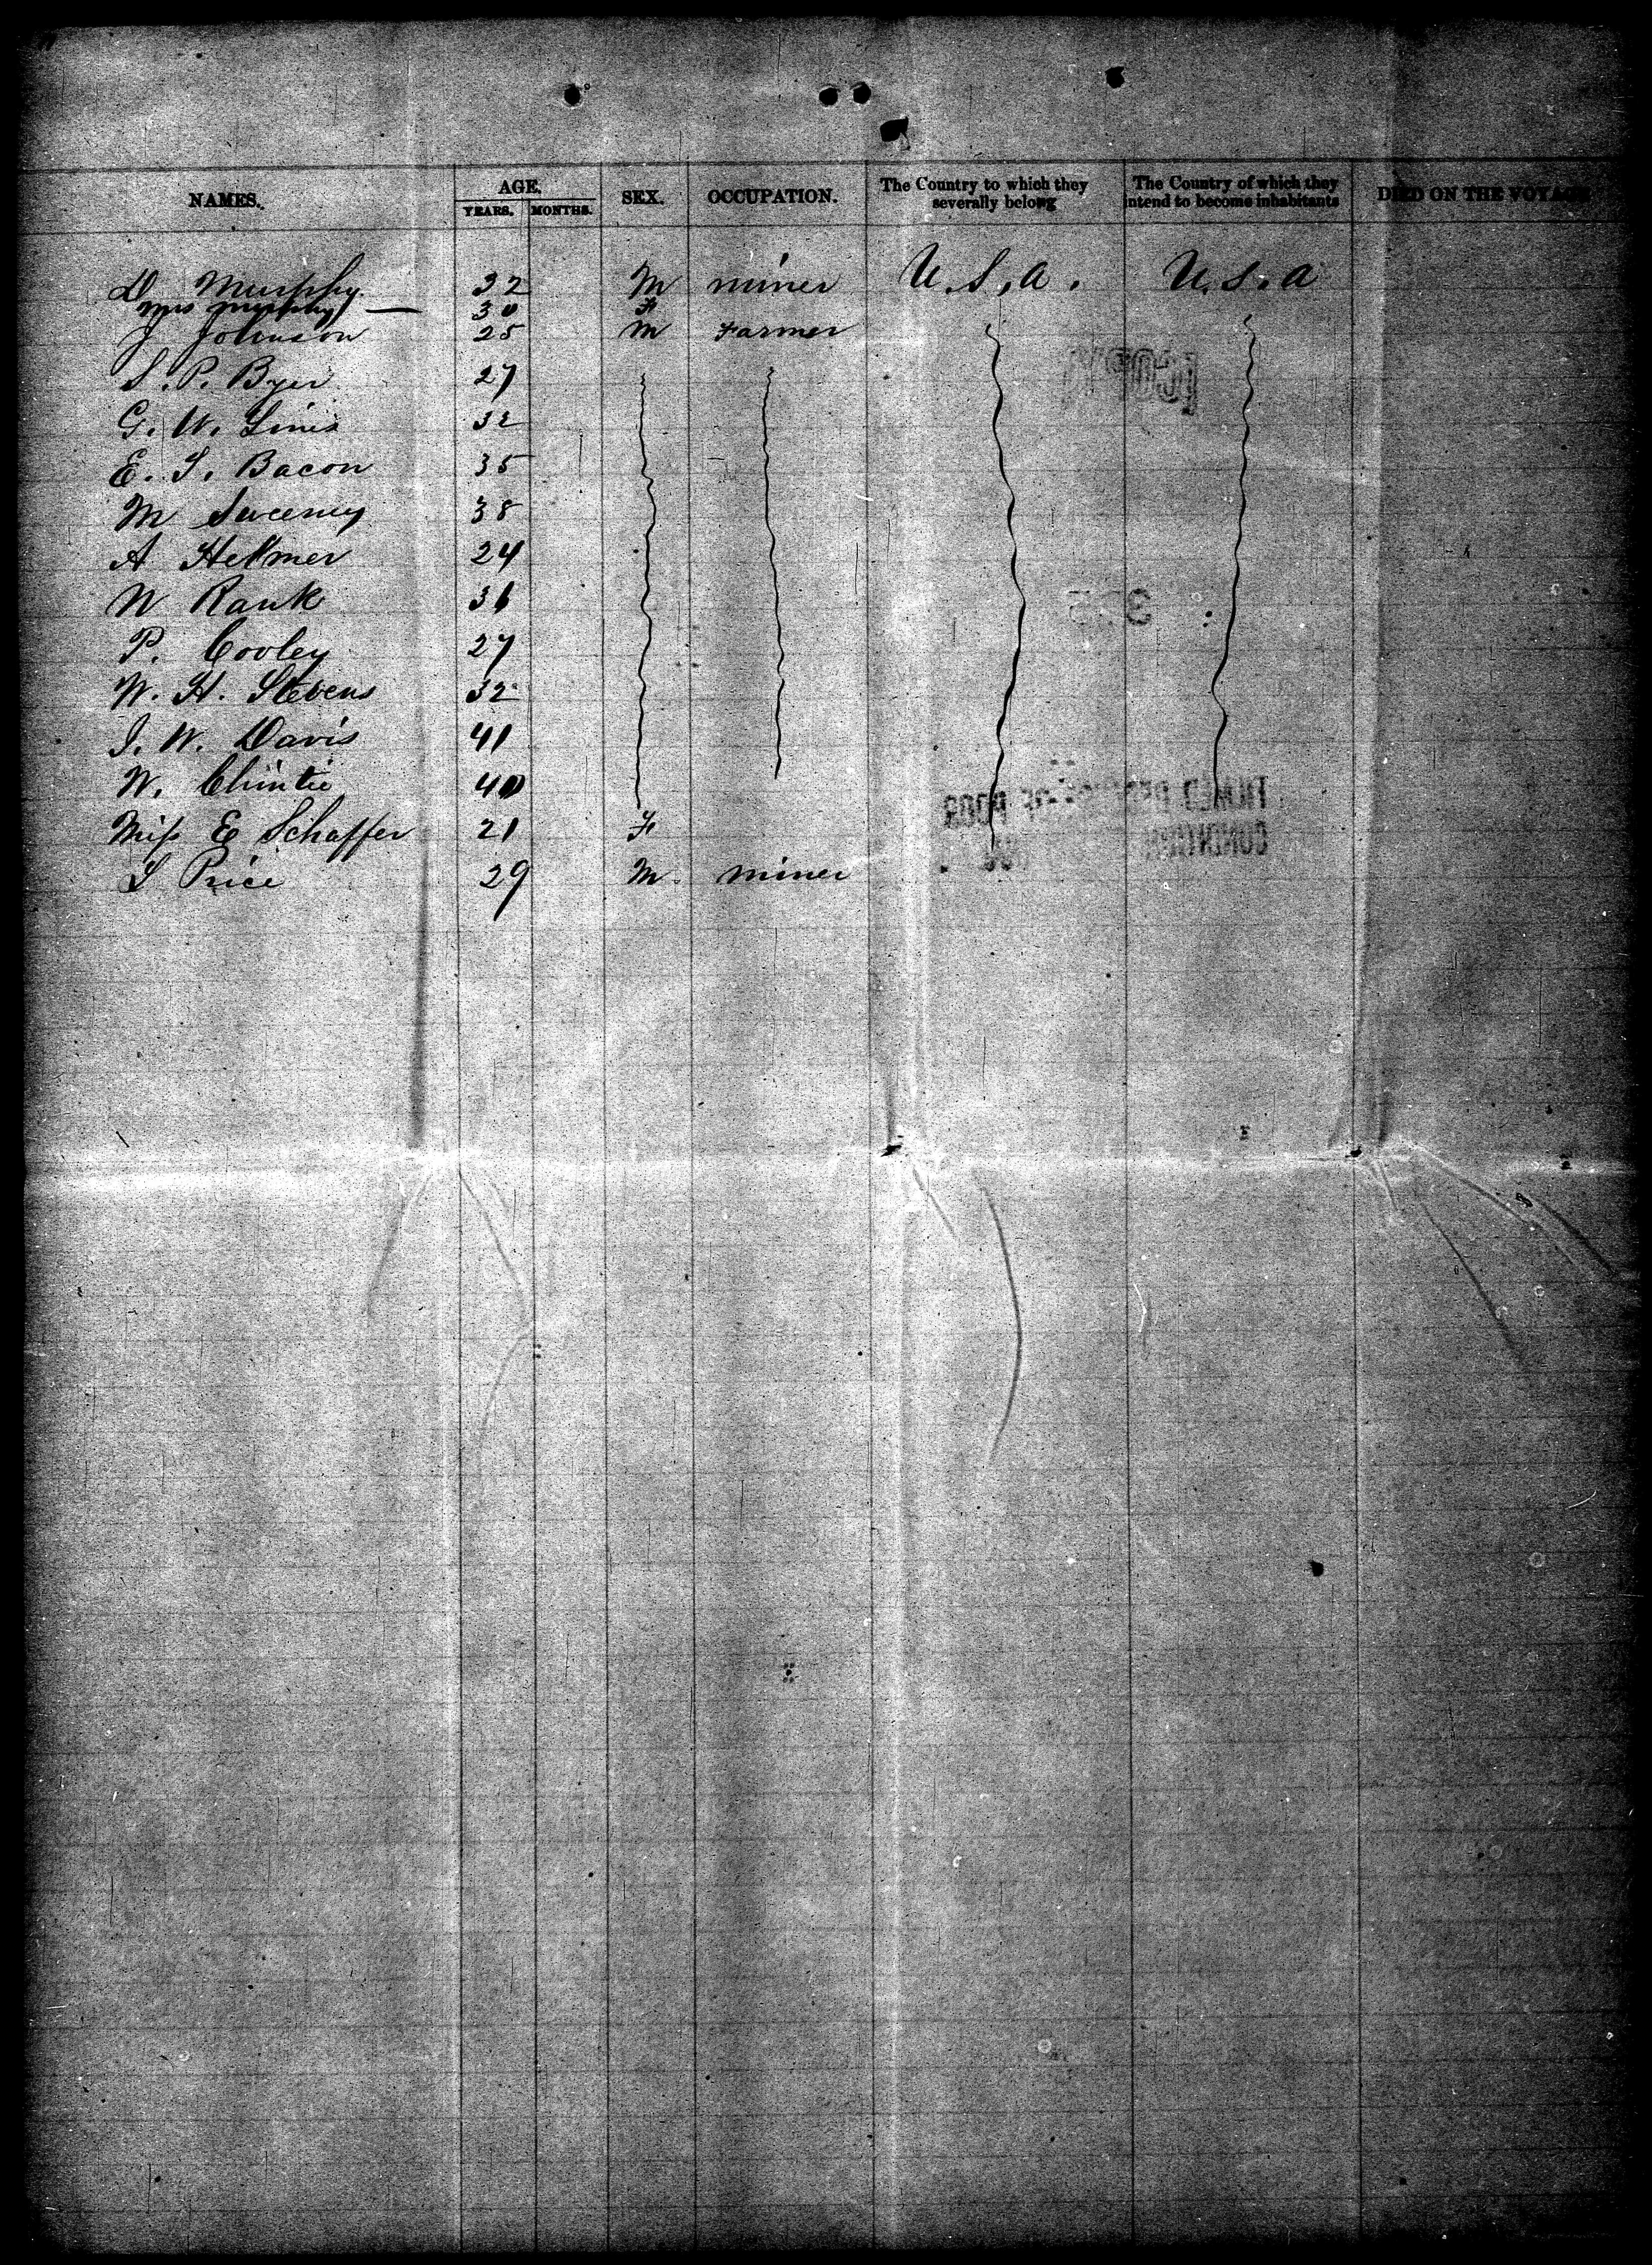 NAMES. AGE. SEX. OCCUPATION. The Country to which they severally belong The Country of which they intend to become inhabitants DIED ON THE VOYAGE
YEARS. MONTHS.
D. Murphy 32 M miner U.S.A. U.S.A
Mrs Murphy — 30 F
J Johnson 25 M Farmer
S. P. Byer 27
G. W. 32
E. S. Bacon 35
M Sweeney 38
A Helmer 24
W Rank 31
P. Cooley 27
W. H. Stevens 32
J. W. Davis 41
W. 40
Miss E Schaffer 21 F
S Price 29 M miner
COPY